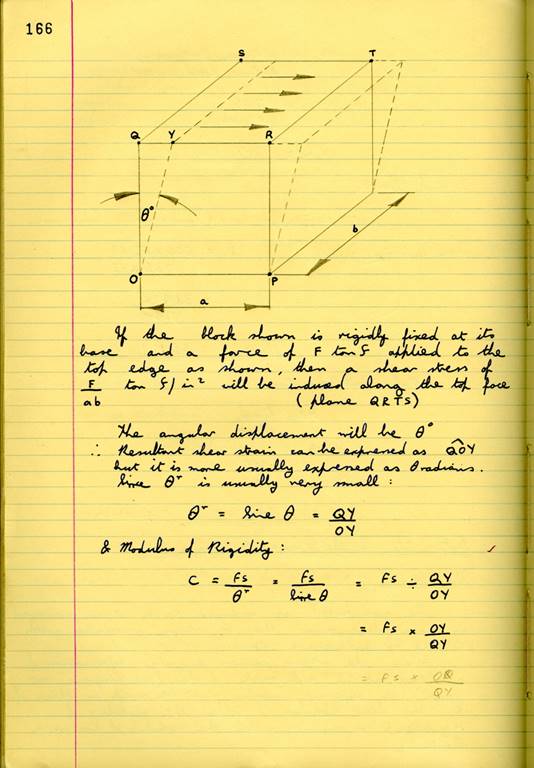 166
S T
Q Y R
θ°
b
O P
a
If the block shown is rigidly fixed at its
base and a force of F ton f applied to the
top edge as shown, then a shear stress of
F/ab ton f/in² will be induced along the top face
(plane QRTS)
The angular displacement will be θ°
∴ Resultant shear strain can be expressed as QÔY
but it is more usually expressed as θ radians.
Since θʳ is usually very small:
θʳ = Sine θ = QY/OY
& Modulus of Rigidity:
C = fs/θʳ = fs/Sine θ = fs ÷ QY/OY
= fs × OY/QY
= fs × OQ/QY